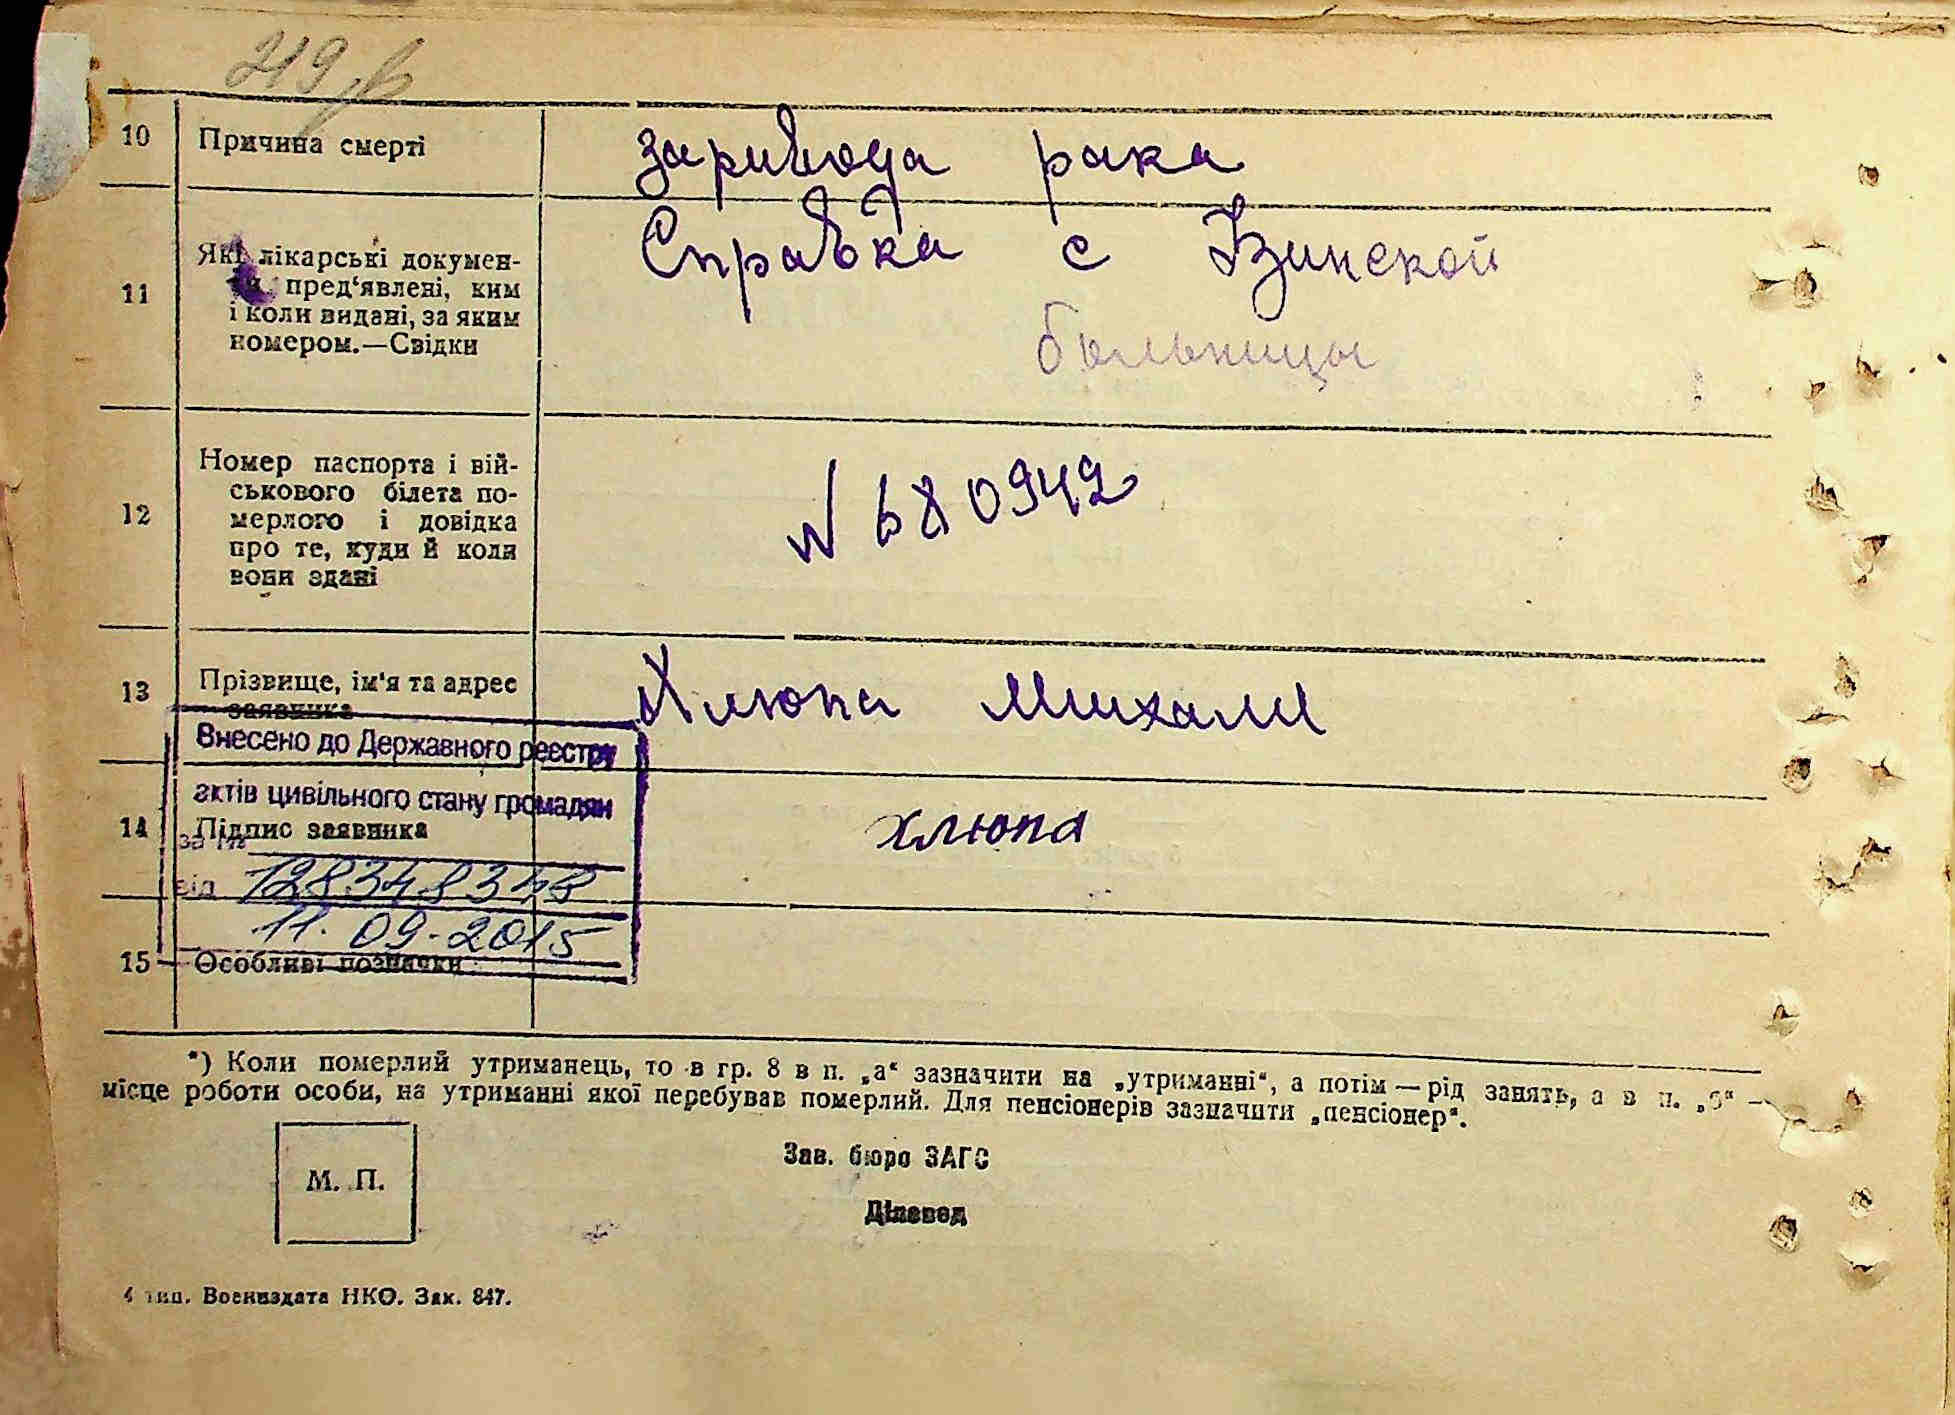 219
10 Причина смерті рака
11 Які лікарські докумен-
ти пред'явлені, ким
і коли видані, за яким
номером.—Свідки
Справка с
больницы
12 Номер паспорта і вій-
ськового білета по-
мерлого і довідка
про те, куди й коли
вони здані
N 680942
13 Прізвище, ім'я та адрес
заявника
Хлюпа Михаил
Внесено до Державного реєстру
актів цивільного стану громадян
14 Підпис заявника хлюпа
за №
від
11.09.2015
15 Особливі позначки
*) Коли померлий утриманець, то в гр. 8 в п. „а“ зазначити на „утриманні“, а потім — рід занять, а в п. „б“ —
місце роботи особи, на утриманні якої перебував померлий. Для пенсіонерів зазначити „пенсіонер“.
М. П.
Зав. бюро ЗАГС
Діловод
4 тип. Воениздата НКО. Зак. 847.